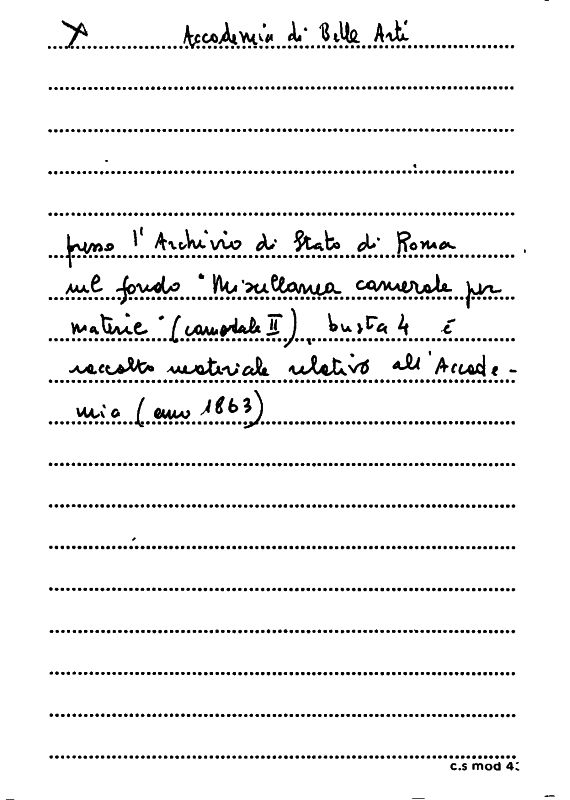 Accademia di Belle Arti
presso l'Archivio di Stato di Roma
nel fondo "Miscellanea camerale per
materie" (camerale II), busta 4 è
raccolto materiale relativo all'Accade-
mia (anno 1863)
c.s mod 43